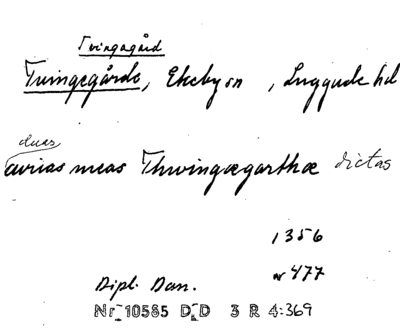 Tvingagård
Tvingegårde, Ekeby sn, Luggude hd
duas
curias meas Thwingægarthæ dictas
1356
nr 477
Dipl. Dan.
Nr 10585 D D 3 R 4:369